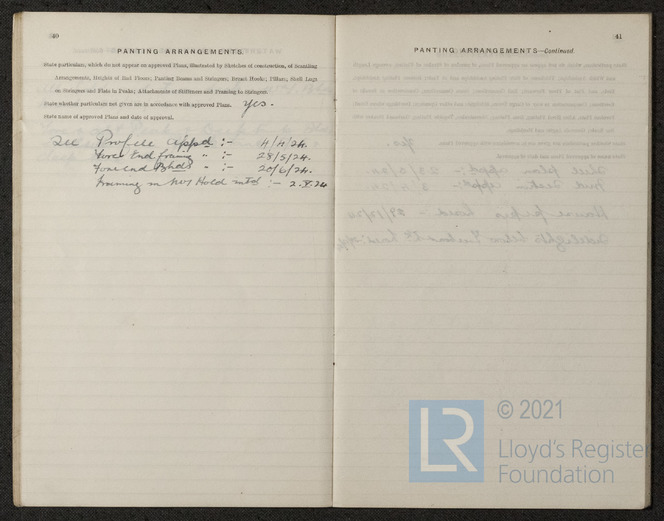 40
PANTING ARRANGEMENTS.
State particulars, which do not appear on approved Plans, illustrated by Sketches of construction, of Bracketing
Arrangements, Heights of End Floors; Panting Beams and Stringers; Breast Hooks; Pillars; Shell Lugs
on Stringers and Flats in Peaks; Attachments of Stiffeners and Framing to Stringers.
State whether particulars not given are in accordance with approved Plans. Yes.
State name of approved Plans and date of approval.
See Profile appd :- 4/4/24.
Fore End framg " :- 28/5/24.
Fore end Bhds " :- 20/6/24.
Framing in No1 Hold mtd :- 2.X.24
41
PANTING ARRANGEMENTS—Continued.
LR
© 2021
Lloyd's Register
Foundation